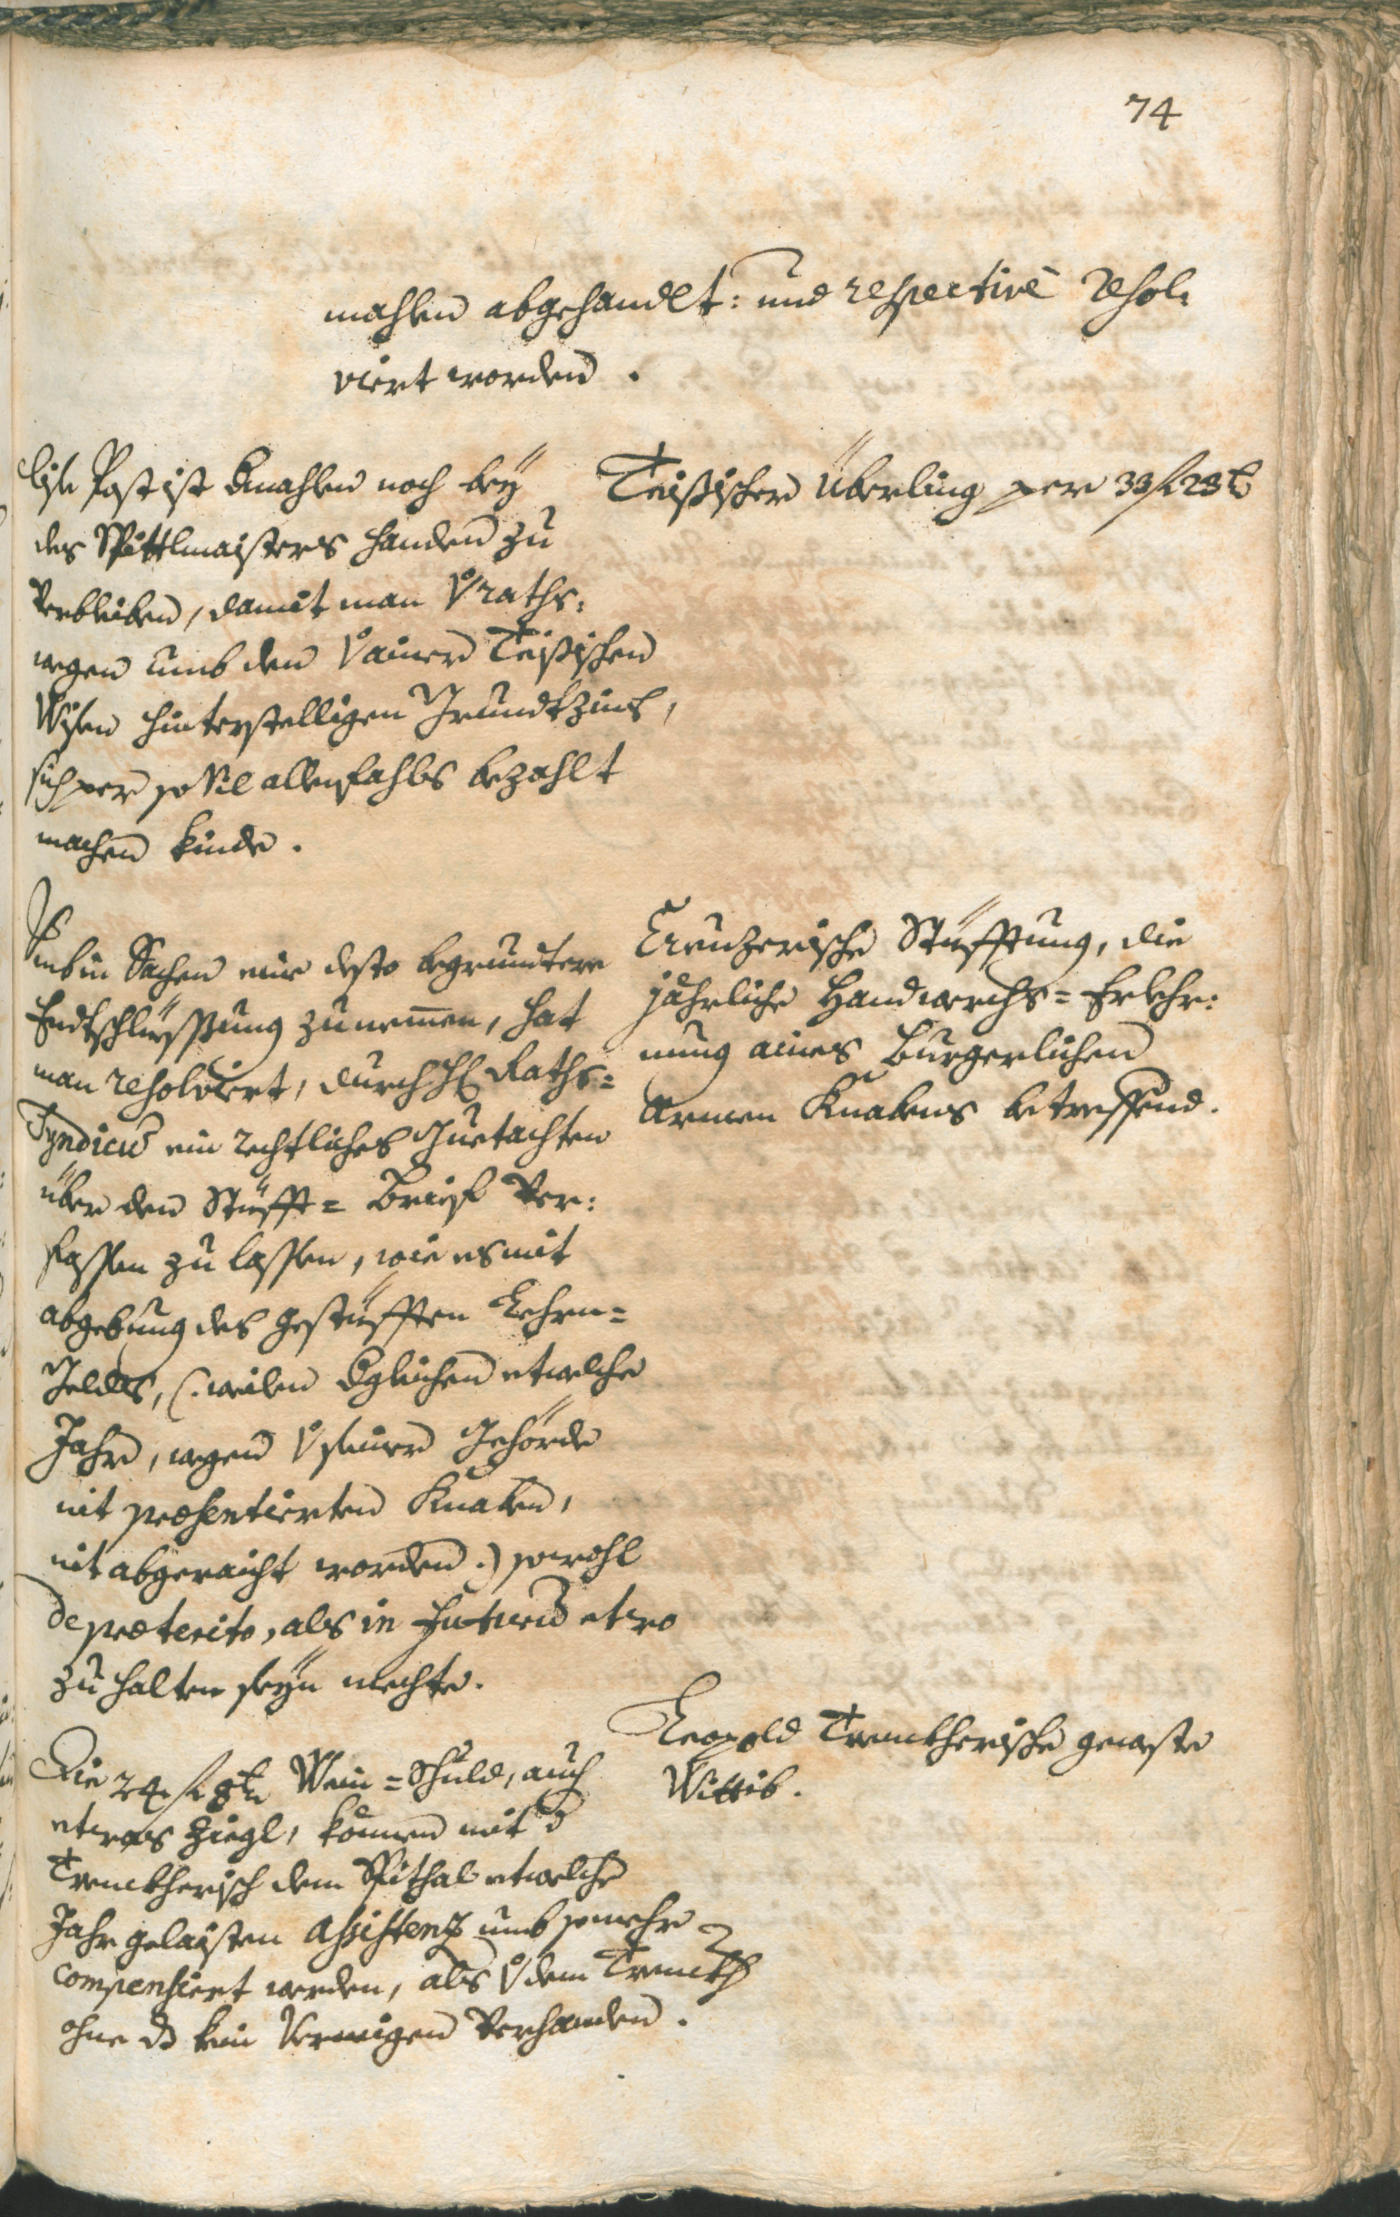 74
mahlen abgehandlt: und respectivè resol:
viert worden.
Teisischer Überling per 33 f 23 x
Dise Post ist dmahlen noch bey
des Spittlmaisters handen zu
verbleiben, damit man v Raths:
wegen umb den v ainer Teisischen
Wisen hinterstelligen Grundtzinß,
sich per so vil allenfahls bezahlt
machen kinde.
Creuzerische Stüfftung, die
jährliche Handwerchs=Erlehr:
nung aines Burgerlichen
Armen Knabens betreffend.
Umb in Sachen eine desto begründtere
Endtschlüessung zunemen, hat
man resolviert, durch H Raths=
Syndicus ein rechtliches Guetachten
über den Stüfft=Brief ver:
fassen zu lassen, wie es mit
abgebung des gestüfften Lehrn=
Geldts, (: weilen dgleichen etwelche
Jahr, wegen v seiner Gehörde
nit præsentierten Knaben,
nit abgeraicht worden :) sowohl
de præterito, als in futurum etwo
zu halten seyn mechte.
Leopold Trenckherische geweste
Wittib.
Die 24 f 8 x Wein=Schuld, auch
etwas Ziegl, können mit d
Trenckherisch dem Spithal etwelche
Jahr gelaisten Assistenz umb somehr
compensiert werden, als v dem Trenckh
ohne ds kein Vermigen verhanden.